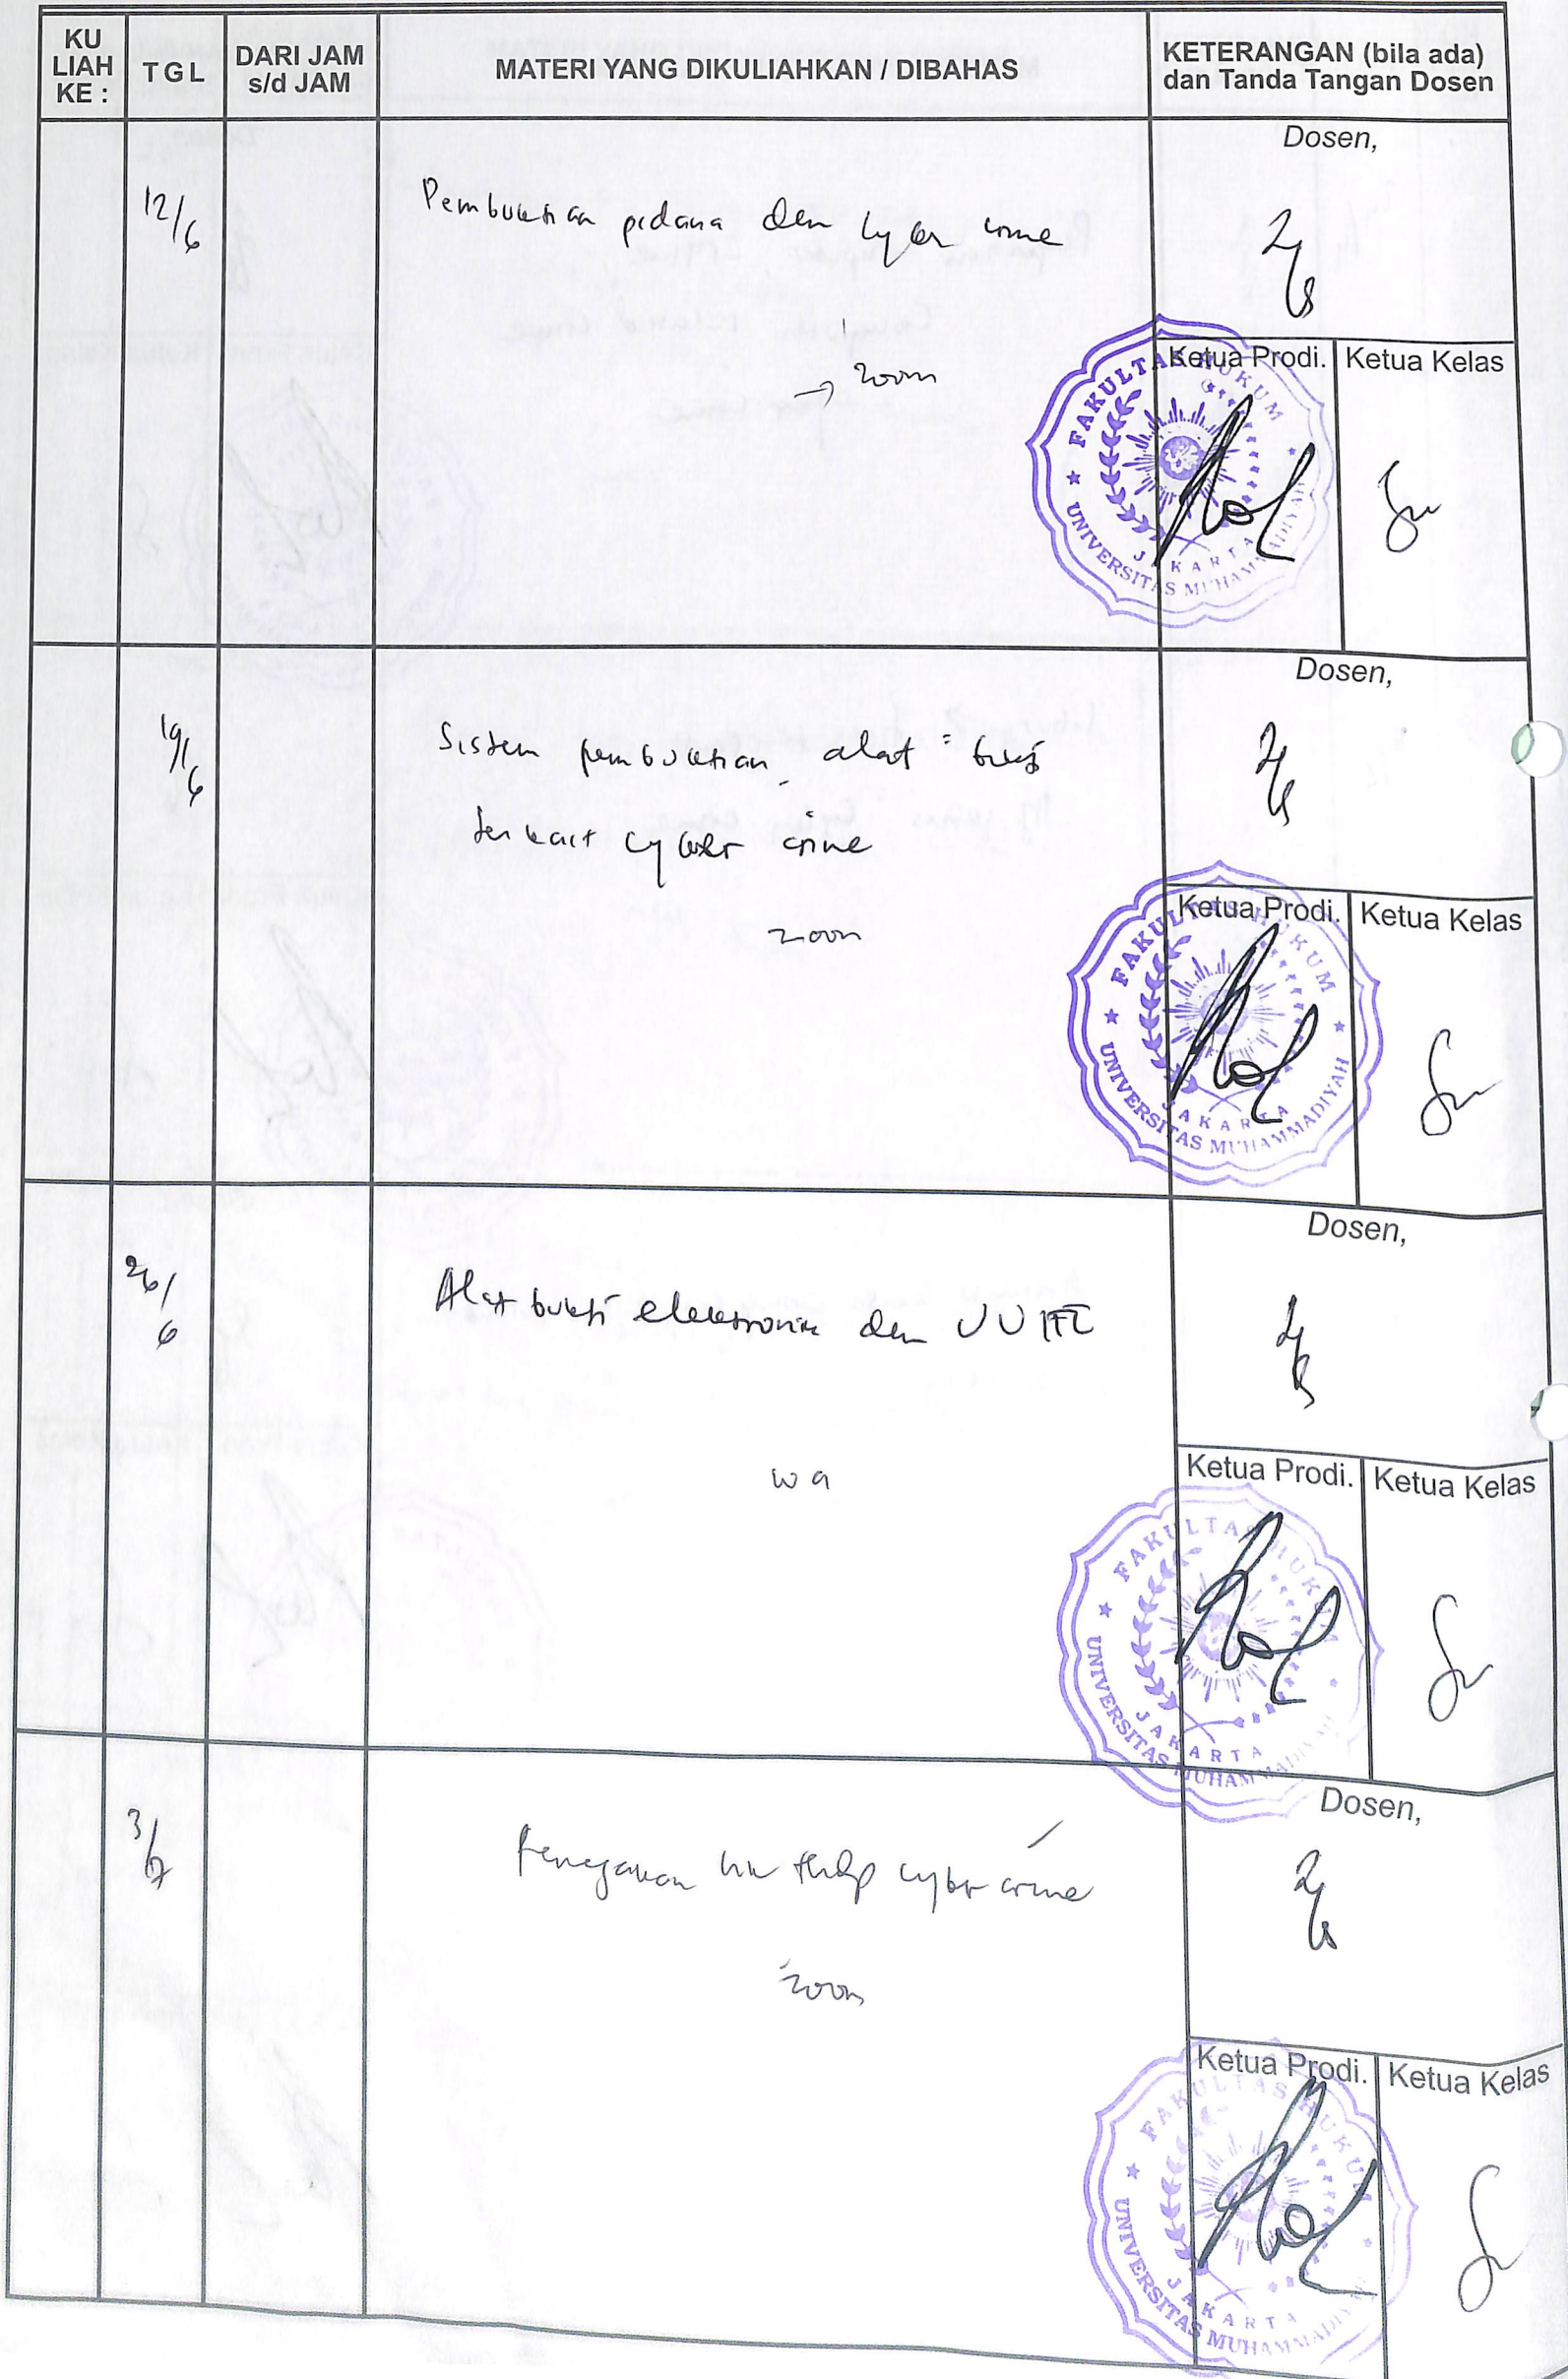 KU LIAH KE :
TGL
DARI JAM s/d JAM
MATERI YANG DIKULIAHKAN / DIBAHAS
KETERANGAN (bila ada) dan Tanda Tangan Dosen
12/6
Pembuktian pidana dan cyber crime
→ zoom
Dosen,
Ketua Prodi.
Ketua Kelas
FAKULTAS HUKUM
UNIVERSITAS MUHAMMADIYAH
JAKARTA
19/6
Sistem pembuktian, alat = bukti
terkait cyber crime
zoom
Dosen,
Ketua Prodi.
Ketua Kelas
FAKULTAS HUKUM
UNIVERSITAS MUHAMMADIYAH
JAKARTA
26/6
Alat bukti elektronik dan UU ITE
wa
Dosen,
Ketua Prodi.
Ketua Kelas
FAKULTAS HUKUM
UNIVERSITAS MUHAMMADIYAH
JAKARTA
3/7
Penegakan hk thdp cyber crime
zoom
Dosen,
Ketua Prodi.
Ketua Kelas
FAKULTAS HUKUM
UNIVERSITAS MUHAMMADIYAH
JAKARTA